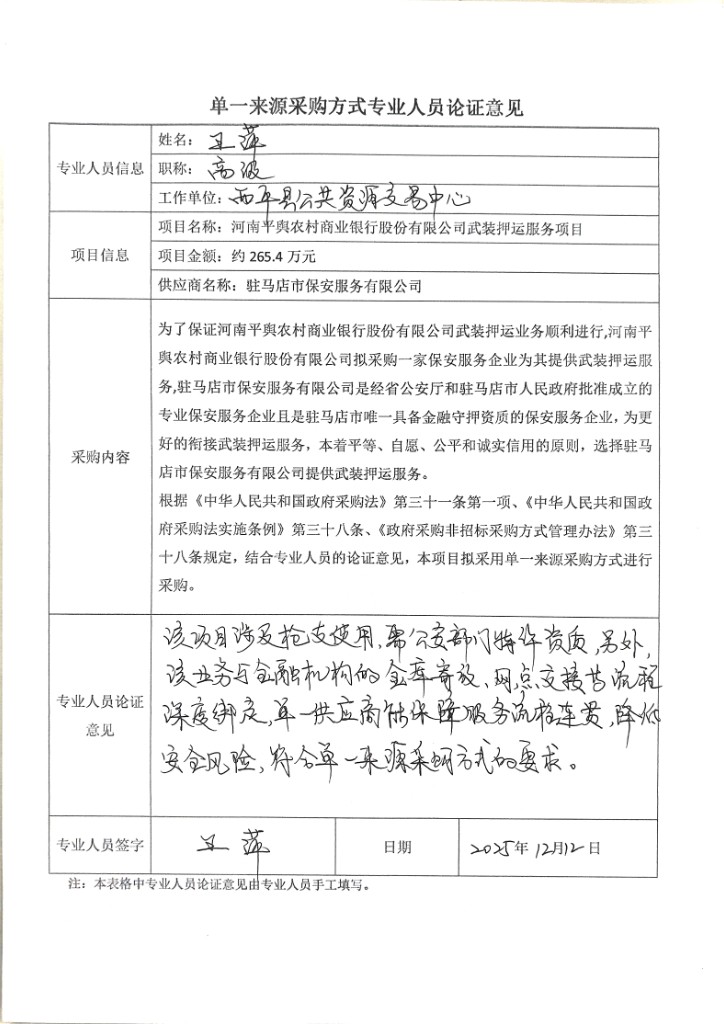 单一来源采购方式专业人员论证意见
专业人员信息
姓名：王萍
职称：高级
工作单位：西平县公共资源交易中心
项目信息
项目名称：河南平舆农村商业银行股份有限公司武装押运服务项目
项目金额：约 265.4 万元
供应商名称：驻马店市保安服务有限公司
采购内容
为了保证河南平舆农村商业银行股份有限公司武装押运业务顺利进行,河南平
舆农村商业银行股份有限公司拟采购一家保安服务企业为其提供武装押运服
务,驻马店市保安服务有限公司是经省公安厅和驻马店市人民政府批准成立的
专业保安服务企业且是驻马店市唯一具备金融守押资质的保安服务企业，为更
好的衔接武装押运服务，本着平等、自愿、公平和诚实信用的原则，选择驻马
店市保安服务有限公司提供武装押运服务。
根据《中华人民共和国政府采购法》第三十一条第一项、《中华人民共和国政
府采购法实施条例》第三十八条、《政府采购非招标采购方式管理办法》第三
十八条规定，结合专业人员的论证意见，本项目拟采用单一来源采购方式进行
采购。
专业人员论证
意见
该项目涉及枪支使用,需公安部门特许资质,另外,
该业务与金融机构的金库寄放、网点交接等流程
深度绑定,单一供应商能保障服务流程连贯,降低
安全风险,符合单一来源采购方式的要求。
专业人员签字
王萍
日期
2025年12月12日
注：本表格中专业人员论证意见由专业人员手工填写。